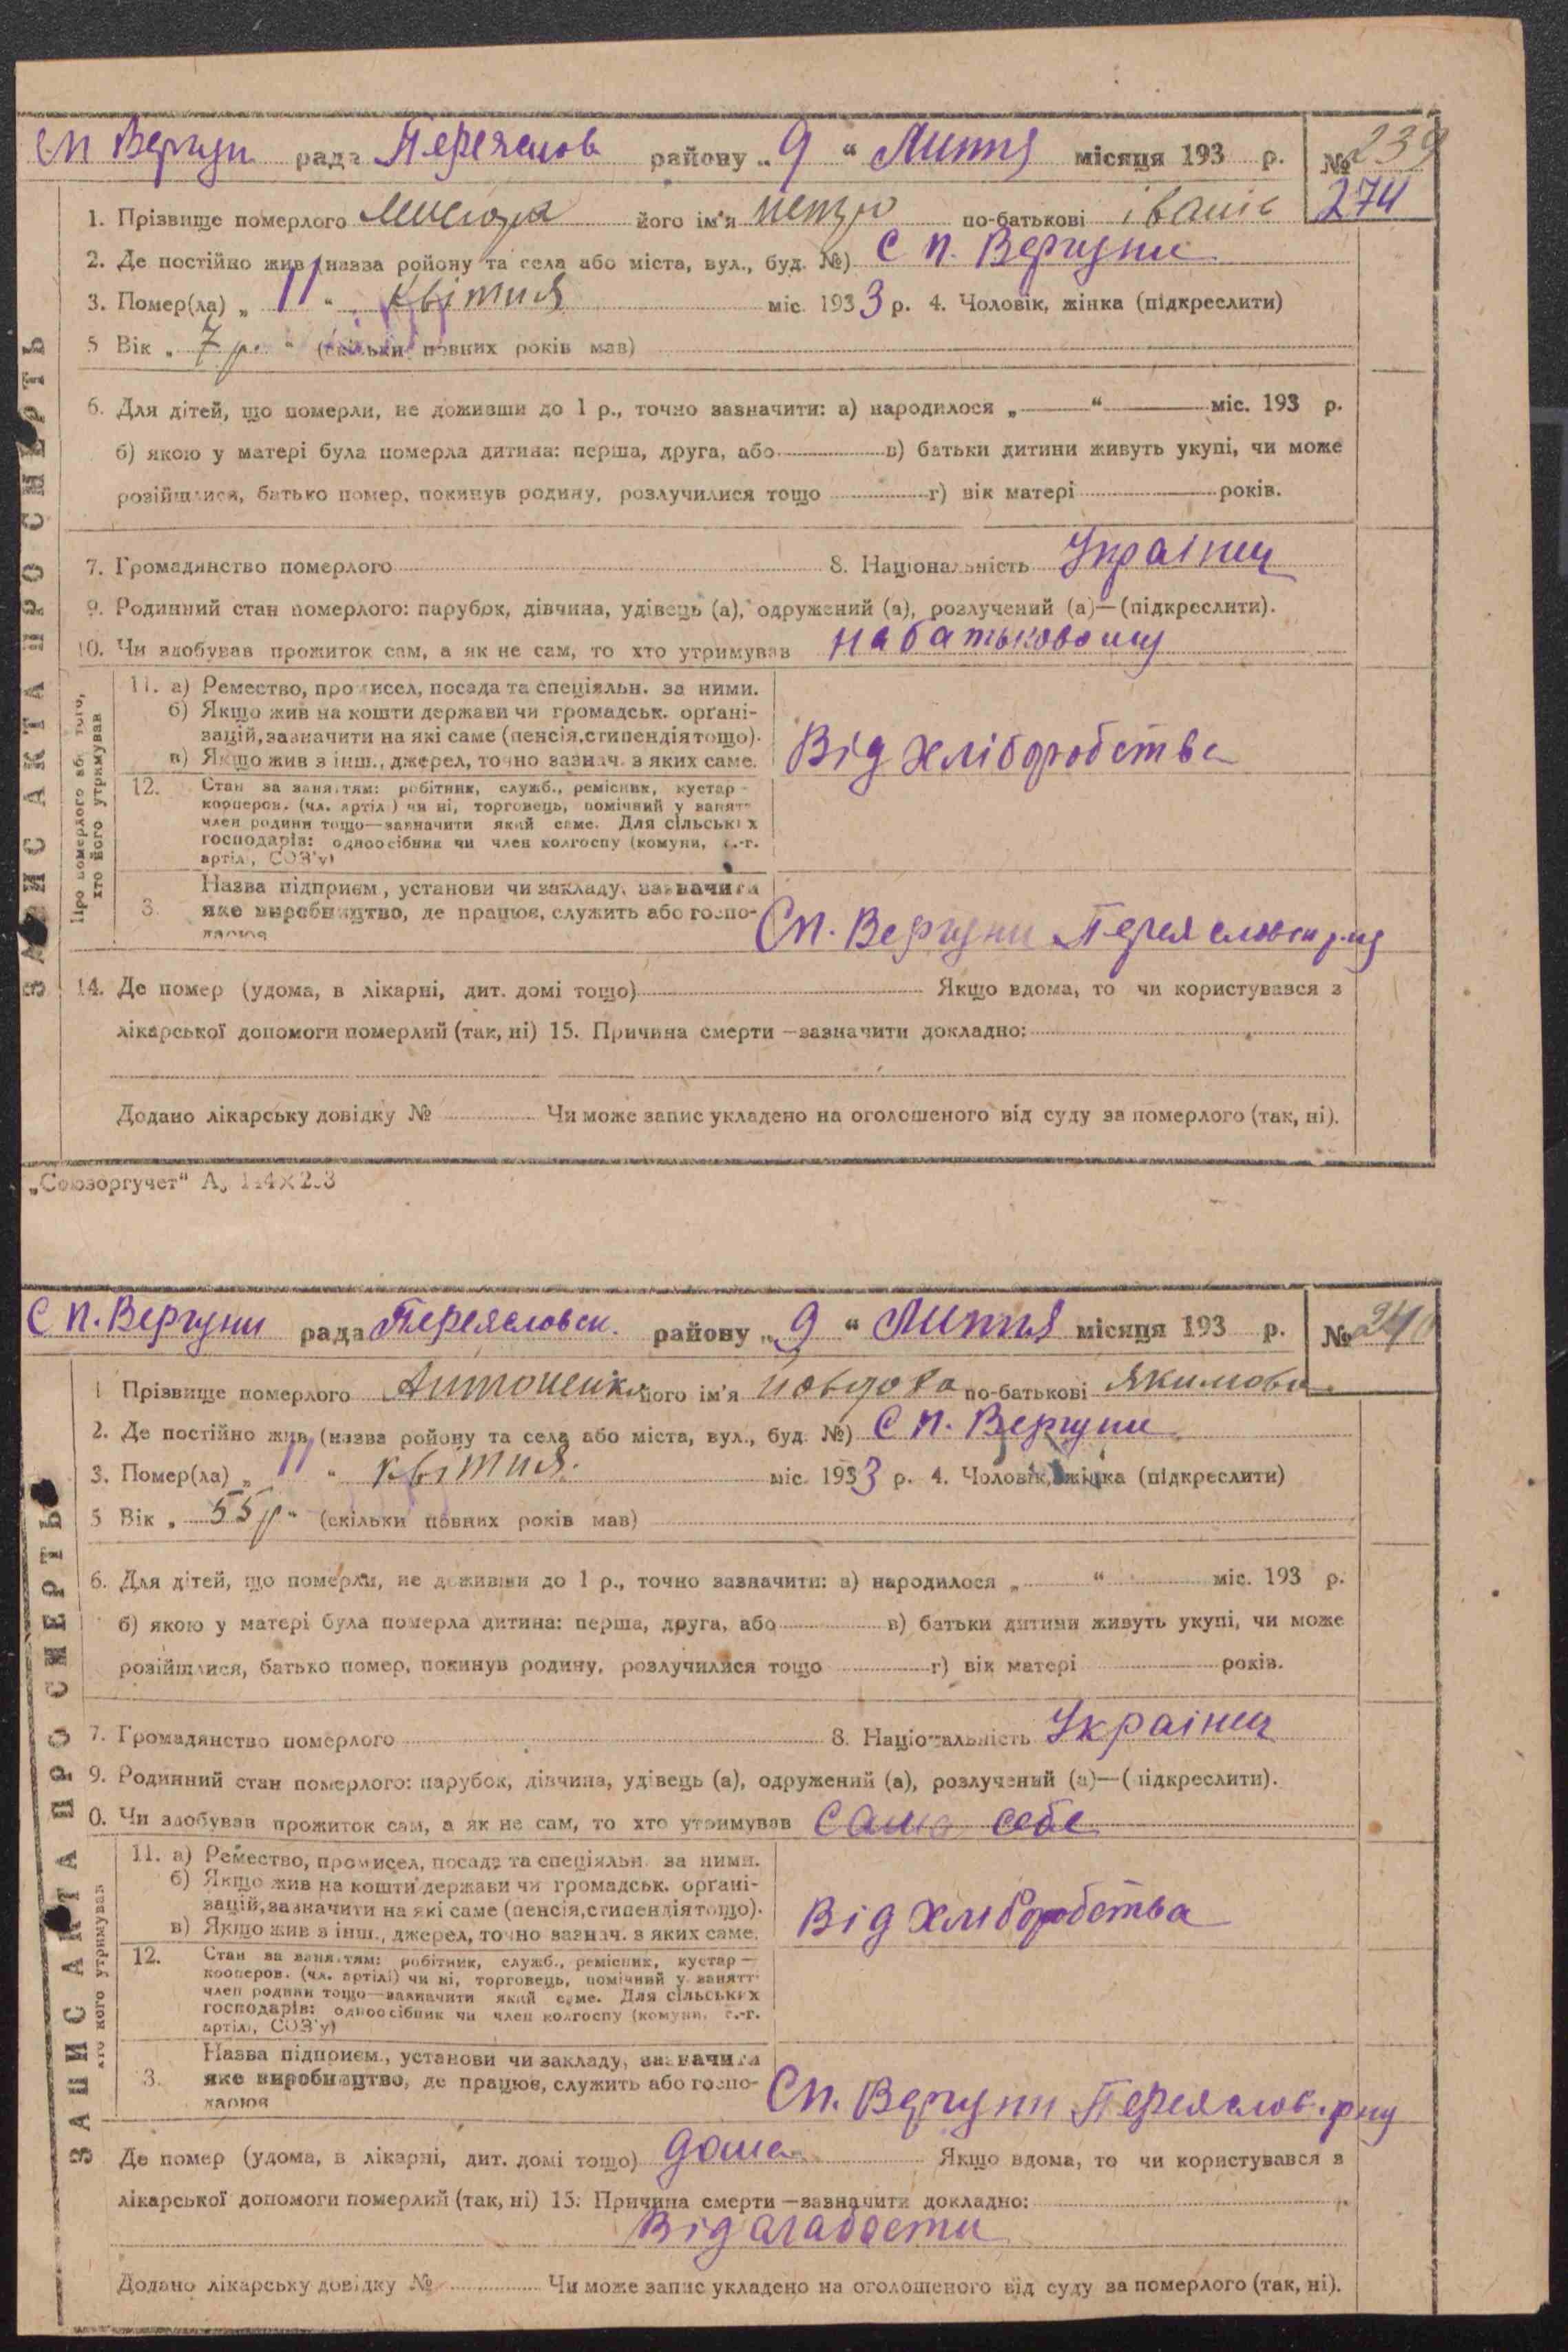 СП Вергун рада Переяслов району „9“ Липня місяця 193 р. № 239
274
1. Прізвище померлого його ім'я петро по-батькові іванів
2. Де постійно жив (назва ройону та села або міста, вул., буд. №) С П. Вергуни
3. Помер(ла) „11“ квітня міс. 1933 р. 4. Чоловік, жінка (підкреслити)
5 Вік „7 р.“ (скільки повних років мав)
6. Для дітей, що померли, не доживши до 1 р., точно зазначити: а) народилося „ “ міс. 193 р.
б) якою у матері була померла дитина: перша, друга, або в) батьки дитини живуть укупі, чи може
розійшлися, батько помер, покинув родину, розлучилися тощо г) вік матері років.
7. Громадянство померлого 8. Національність Українец
9. Родинний стан померлого: парубок, дівчина, удівець (а), одружений (а), розлучений (а)—(підкреслити).
10. Чи здобував прожиток сам, а як не сам, то хто утримував на батьковому
ЗАПИС АКТА ПРО СМЕРТЬ
Про померлого або того,
хто його утримував
11. а) Ремество, промисел, посада та спеціяльн. за ними.
б) Якщо жив на кошти держави чи громадськ. орґані-
зацій, зазначити на які саме (пенсія, стипендія тощо).
в) Якщо жив з інш., джерел, точно зазнач. з яких саме.
Від хліборобства
12. Стан за заняттям: робітник, служб., ремісник, кустар—
кооперов. (чл. артілі) чи ні, торговець, помічний у занятт
член родини тощо—зазначити який саме. Для сільських
господарів: одноосібник чи член колгоспу (комуни, с.-г.
артілі, СОЗ'у)
3. Назва підприєм., установи чи закладу, зазначити
яке виробництво, де працює, служить або госпо-
дарює
Сп. Вергуни Переяславськ р-ну
14. Де помер (удома, в лікарні, дит. домі тощо) Якщо вдома, то чи користувався з
лікарської допомоги померлий (так, ні) 15. Причина смерти —зазначити докладно:
Додано лікарську довідку № Чи може запис укладено на оголошеного від суду за померлого (так, ні).
„Союзоргучет“
С П. Вергуни рада Переясловск. району „9“ Липня місяця 193 р. № 240
1 Прізвище померлого Антоненко його ім'я Явдоха по-батькові Якимова
2. Де постійно жив (назва ройону та села або міста, вул., буд. №) С П. Вергуни
3. Помер(ла) „11“ квітня. міс. 1933 р. 4. Чоловік, жінка (підкреслити)
5 Вік „55 р“ (скільки повних років мав)
6. Для дітей, що померли, не доживши до 1 р., точно зазначити: а) народилося „ “ міс. 193 р.
б) якою у матері була померла дитина: перша, друга, або в) батьки дитини живуть укупі, чи може
розійшлися, батько помер, покинув родину, розлучилися тощо г) вік матері років.
7. Громадянство померлого 8. Національність Українец
9. Родинний стан померлого: парубок, дівчина, удівець (а), одружений (а), розлучений (а)—(підкреслити).
0. Чи здобував прожиток сам, а як не сам, то хто утримував сама себе
ЗАПИС АКТА ПРО СМЕРТЬ
хто його утримував
11. а) Ремество, промисел, посада та спеціяльн. за ними.
б) Якщо жив на кошти держави чи громадськ. орґані-
зацій, зазначити на які саме (пенсія, стипендія тощо).
в) Якщо жив з інш., джерел, точно зазнач. з яких саме.
Від хліборобства
12. Стан за заняттям: робітник, служб., ремісник, кустар—
кооперов. (чл. артілі) чи ні, торговець, помічний у занятт
член родини тощо—зазначити який саме. Для сільських
господарів: одноосібник чи член колгоспу (комуни, с.-г.
артілі, СОЗ'у)
3. Назва підприєм., установи чи закладу, зазначити
яке виробництво, де працює, служить або госпо-
дарює
Сп. Вергуни Переяслов. р-ну
Де помер (удома, в лікарні, дит. домі тощо) дома Якщо вдома, то чи користувався з
лікарської допомоги померлий (так, ні) 15. Причина смерти —зазначити докладно:
Від слабости
Додано лікарську довідку № Чи може запис укладено на оголошеного від суду за померлого (так, ні).